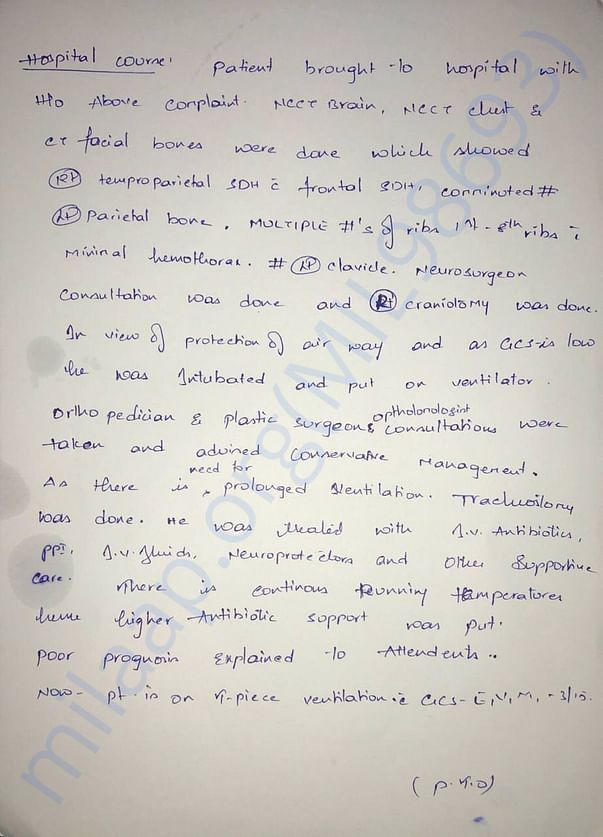 Hospital course: Patient brought to hospital with
H/o Above complaint. NCCT Brain, NCCT chest &
CT facial bones were done which showed
Rt temproparietal SDH c̄ frontal SDH, comminuted #
Lt Parietal bone. MULTIPLE #'s of ribs 1st - 8th ribs c̄
Minimal hemothorax. # Lt clavicle. Neurosurgeon
Consultation was done and Rt craniotomy was done.
In view of protection of air way and as GCS-is low
he was Intubated and put on ventilator.
Ortho pedician & plastic surgeon & opthalonologist Consultations were
taken and advised Conservative Management.
As there is need for prolonged Ventilation. Tracheostomy
was done. He was treated with I.V. Antibiotics,
PPI, I.v. fluids, Neuroprotectors and Other Supportive
care. There is continous Running temperatures
hence higher Antibiotic support was put.
poor prognosis Explained to Attendents..
Now- pt. is on T-piece ventilation. c̄ GCS- E1V1M1 - 3/15.
(P.T.O)
milaap.org(MIL98693)